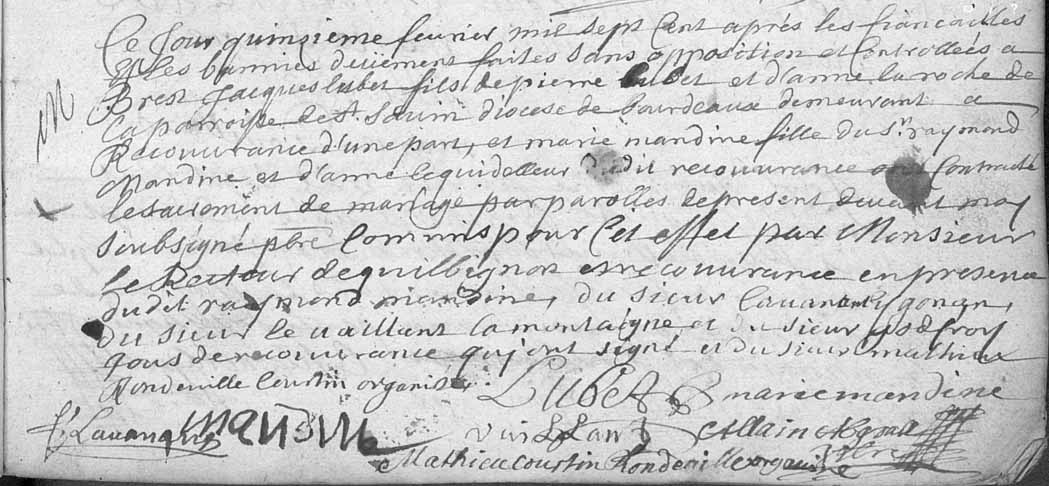 M
Ce Jour quinzieme fevrier mil sept Cent aprés les fiancailles
et les bannies deüement faites sans opposition et Controllées a
Brest Jacques lubet fils de pierre lubet et d'anne la roche de
la parroisse de St. Saurin diocese de bourdeaux demeurant a
Recouvrance d'une part, et marie mandine fille du Sr. raymond
Mandine et d'anne lequidelleur dudit recouvrance ont Contracté
le sacrement de mariage par parolles de present devant moy
soubsigné pbre Commis pour Cet effet par Monsieur
le Recteur de quilbignon et recouvrance en presence
dudit raymond mandine, du sieur gonan,
du sieur le vaillant la montaigne et du sieur godfroy
tous de recouvrance qui ont signé et du sieur mathieu
Rondeville Coustin organiste.
LUbEt marie mandine
mandine Allain
Mathieu Coustin Rondeville organiste